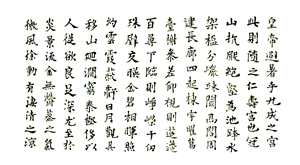 皇帝避暑乎九成之宮
此則隨之仁壽宮也冠
山抗殿絕壑為池跨水
架楹分巖竦闕高閣周
建長廊四起棟宇膠葛
臺榭參差仰視則迢遰
百尋下臨則崢嶸千仞
珠璧交映金碧相暉照
灼雲霞蔽虧日月觀其
移山迴澗窮泰極侈以
人從欲良足深尤至於
炎景流金無鬱蒸之氣
微風徐動有淒清之涼